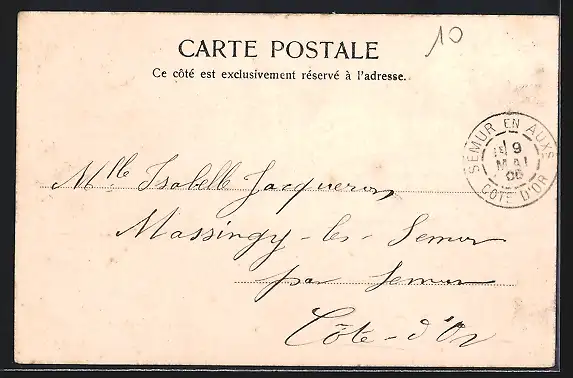 10
CARTE POSTALE
Ce côté est exclusivement réservé à l'adresse.
SEMUR EN AUXS
9
MAI
CÔTE D'OR
Mlle Isabelle Jacqueron
Massingy-les-Semur
par Semur
Côte-d'Or